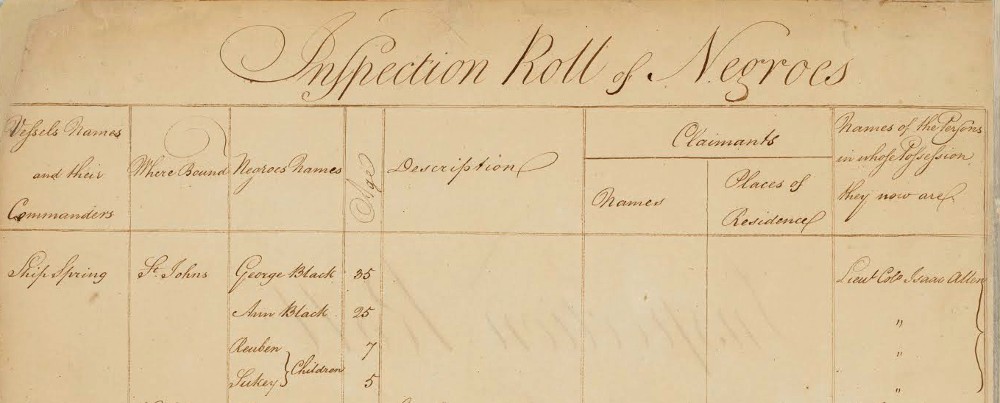 Inspection Roll of Negroes
Vessels Names and their Commanders
Where Bound
Negroes Names
Age
Description
Claimants
Names
Places of Residence
Names of the Persons in whose Possession they now are
Ship Spring St. Johns George Black 35 Lieut Colo Isaac Allen
Ann Black 25 "
Reuben 7 "
Sukey } Children 5 "